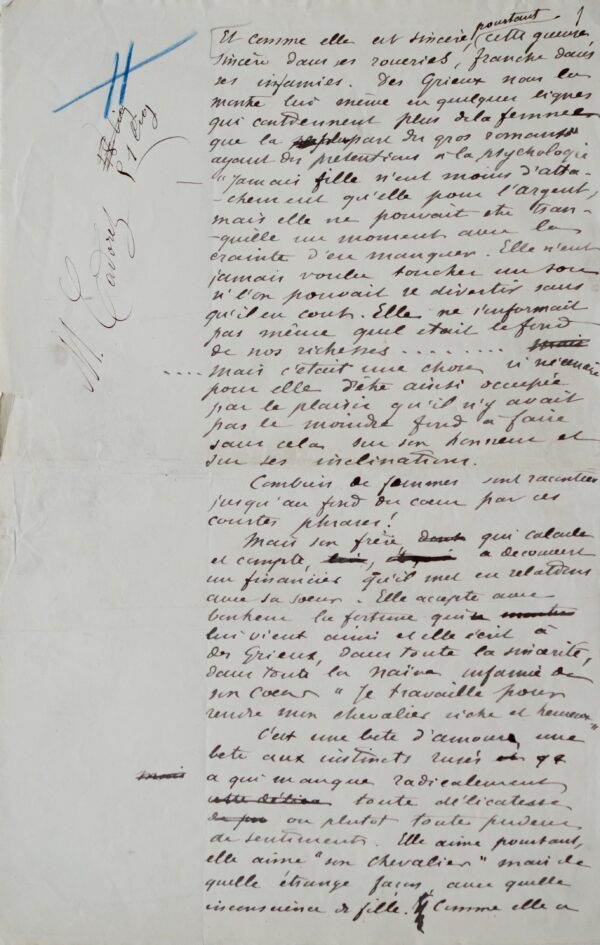 pourtant
Et comme elle est sincère, cette gueuse,
sincère dans ses roueries, franche dans
ses infamies. Des Grieux nous la
montre lui même en quelques lignes
qui contiennent plus de la femme
que la plupart des gros romans
ayant des prétentions à la psychologie
"Jamais fille n'eut moins d'atta-
-chement qu'elle pour l'argent,
mais elle ne pouvait etre tran-
-quille un moment avec la
crainte d'en manquer. Elle n'eut
jamais voulu toucher un sou
si l'on pouvait se divertir sans
qu'il en coute. Elle ne s'informait
pas même quel était le fond
de nos richesses ........ mais
.... mais c'était une chose si nécessaire
pour elle d'etre ainsi occupée
par le plaisir qu'il n'y avait
pas le moindre fond à faire
sans cela sur son honneur et
sur ses inclinations.
Combien de femmes sont racontées
jusqu'au fond du coeur par ces
courtes phrases!
Mais son frère dont qui calcule
et compte, lui, a decouvert
un financier qu'il met en relations
avec sa soeur. Elle accepte avec
bonheur la fortune qui
lui vient ainsi et elle écrit à
des Grieux, dans toute la sincérité,
dans toute la naïve infamie de
son coeur "Je travaille pour
rendre mon chevalier riche et heureux"
C'est une bete d'amour, une
bete aux instincts rusés et
mais
a qui manque radicalement
cette délica toute délicatesse
ou plutot toute pudeur
de sentiments. Elle aime pourtant,
elle aime "son chevalier" mais de
quelle étrange façon, avec quelle
inconscience de fille. Comme elle a
M. Cadorel